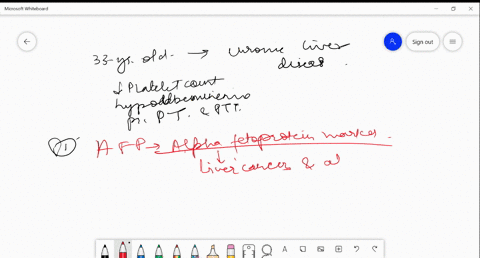 Microsoft Whiteboard
Sign out
33-yr. old. → chronic liver
diseas
↓ Platelet count
hypoalbuminemia
PT. & PTT.
1) AFP → Alpha fetoprotein marker.
↓
liver cancer & al